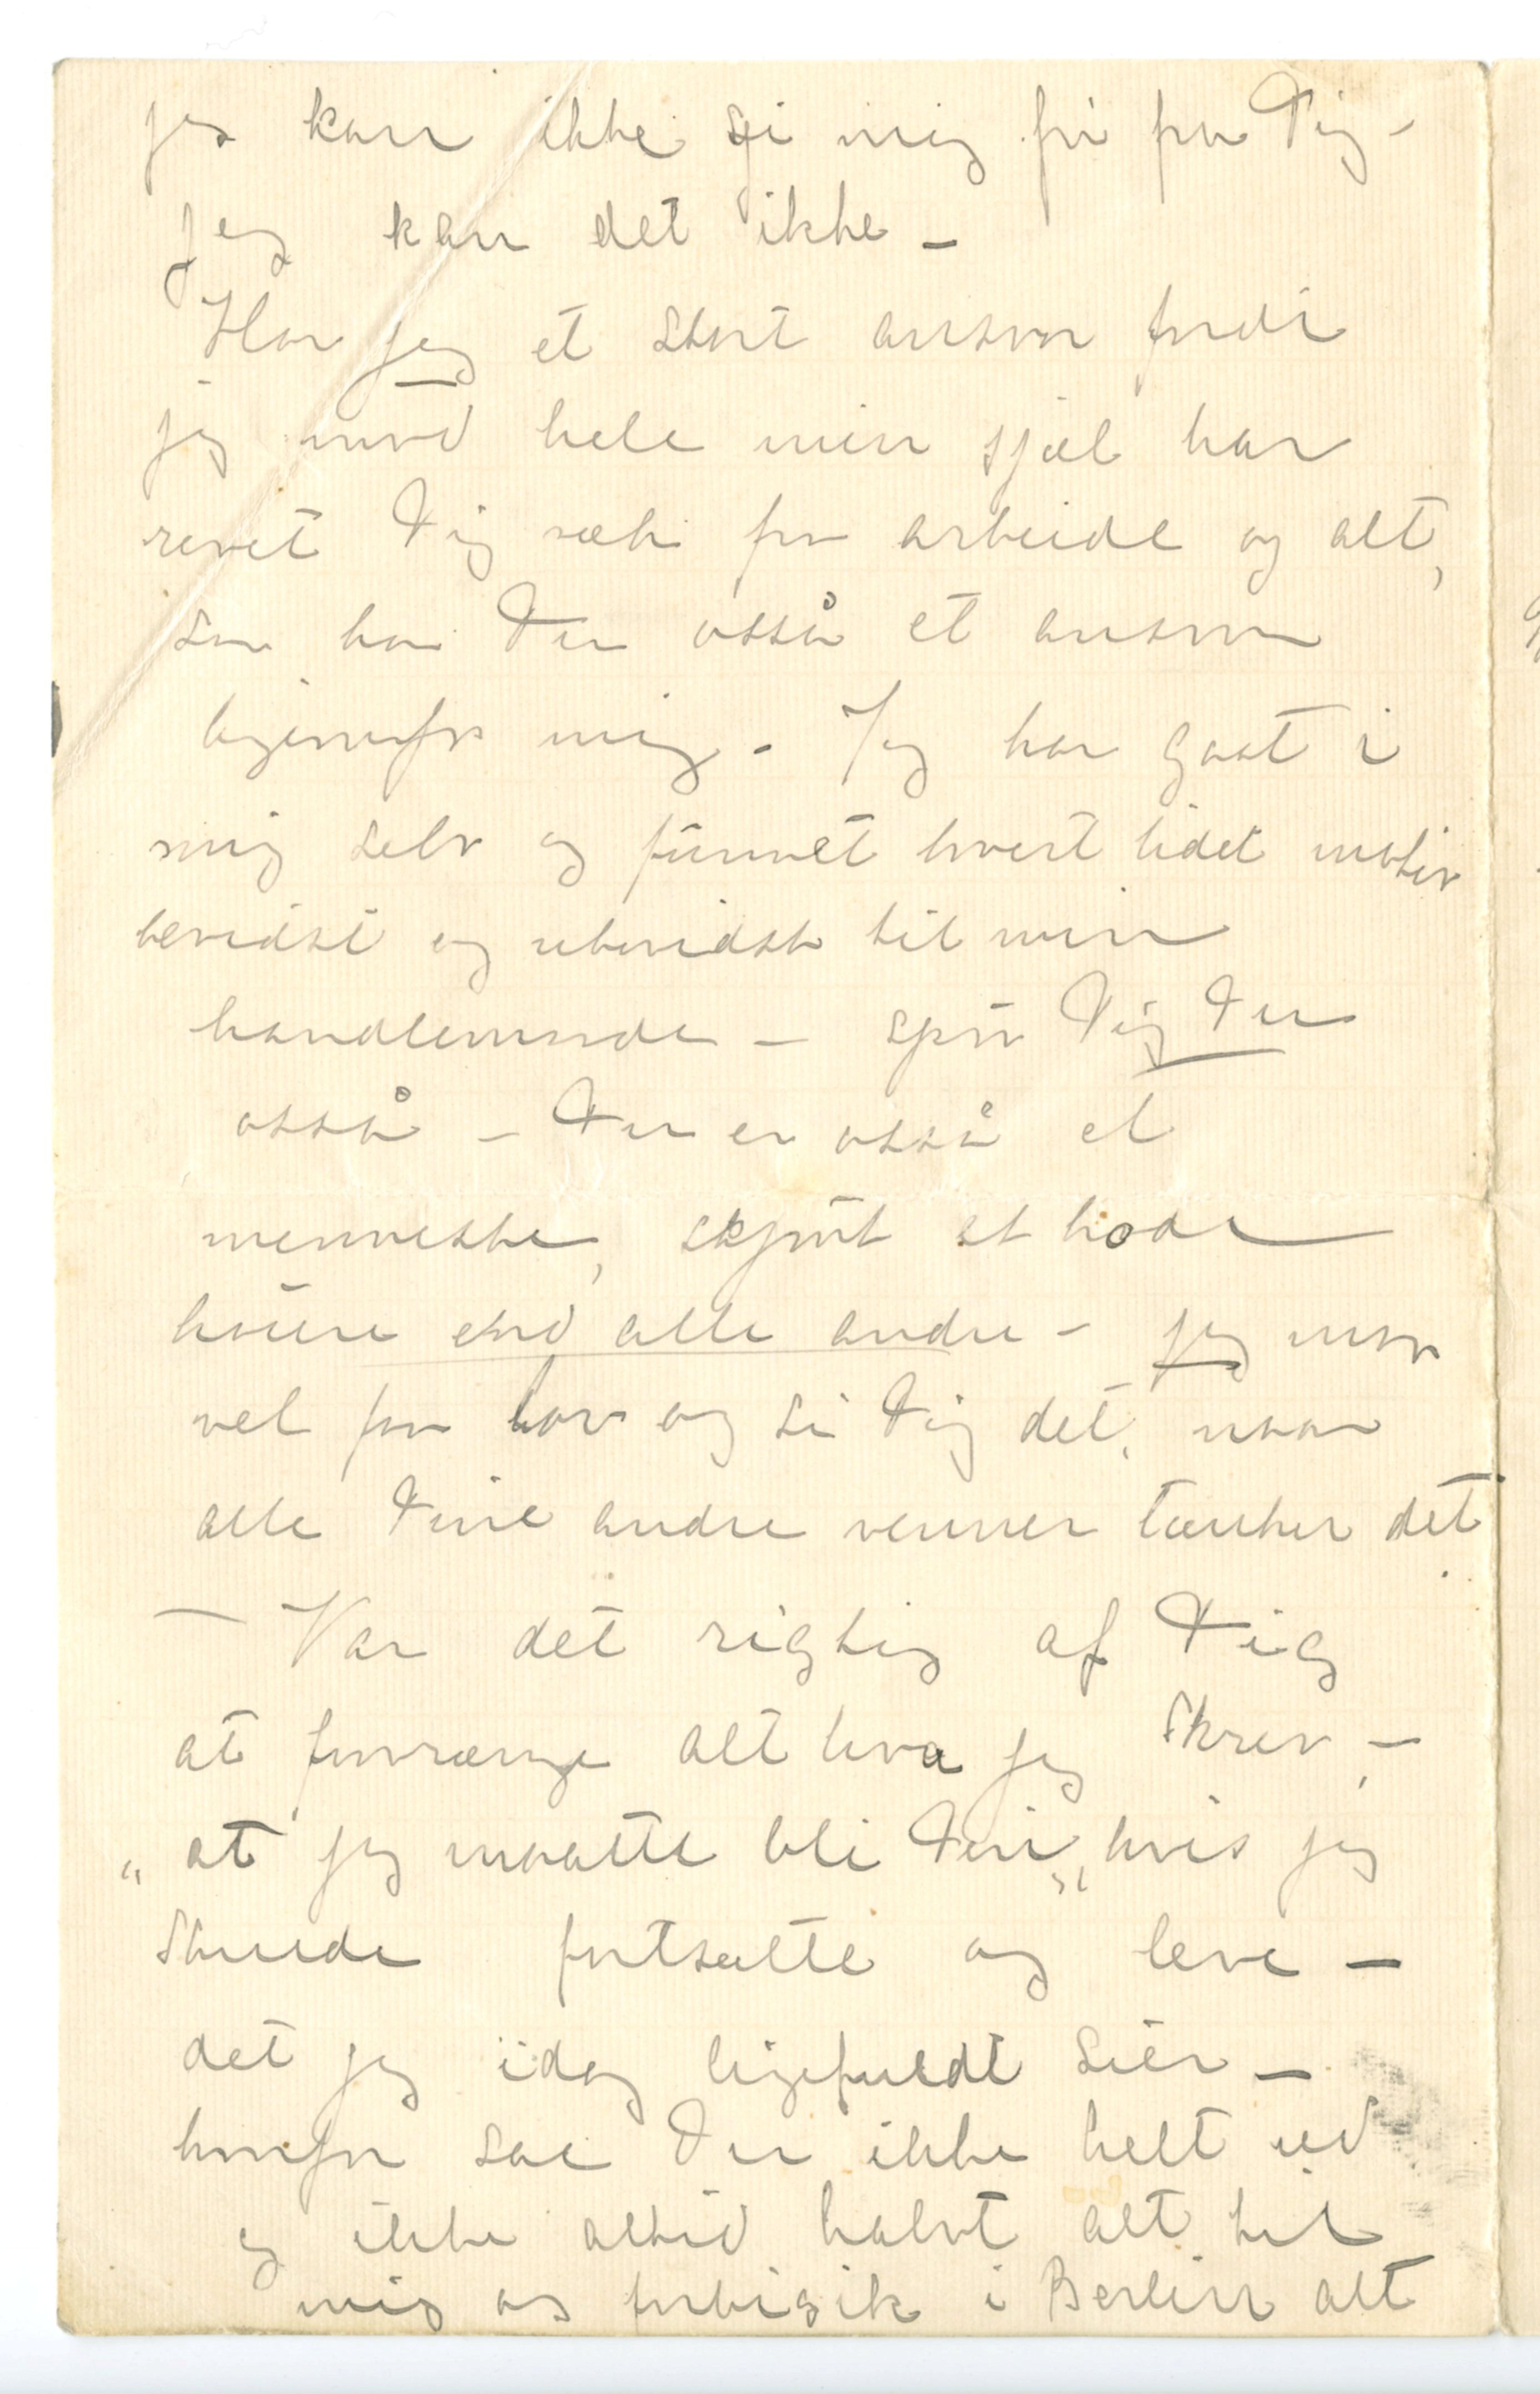 jeg kan ikke gi mig fri fra Dig –
jeg kan det ikke –
Har jeg et stort ansvar fordi
jeg mod hele min sjæl har
revet Dig væk fra arbeide og alt,
saa har Du osså et ansvar
ligeoverfor mig. – Jeg har gaat i
mig selv og funnet hvert lidet motiv
bevidst og ubevidst til min
handlemaade – spør Dig Du
osså – Du er osså et
menneske, skjønt et hode
høiere end alle andre – jeg maa
vel faa lov og si Dig det, naar
alle Dine andre venner tænker det
– Var det rigtig af Dig
at forvrænge alt hva jeg skrev, –
„at jeg maatte bli Din„ hvis jeg
skulde fortsætte og leve –
det jeg idag ligefuldt sier –
hvorfor saa Du ikke helt ud
og ikke altid halvt alt til
mig og forbigik i Berlin alt